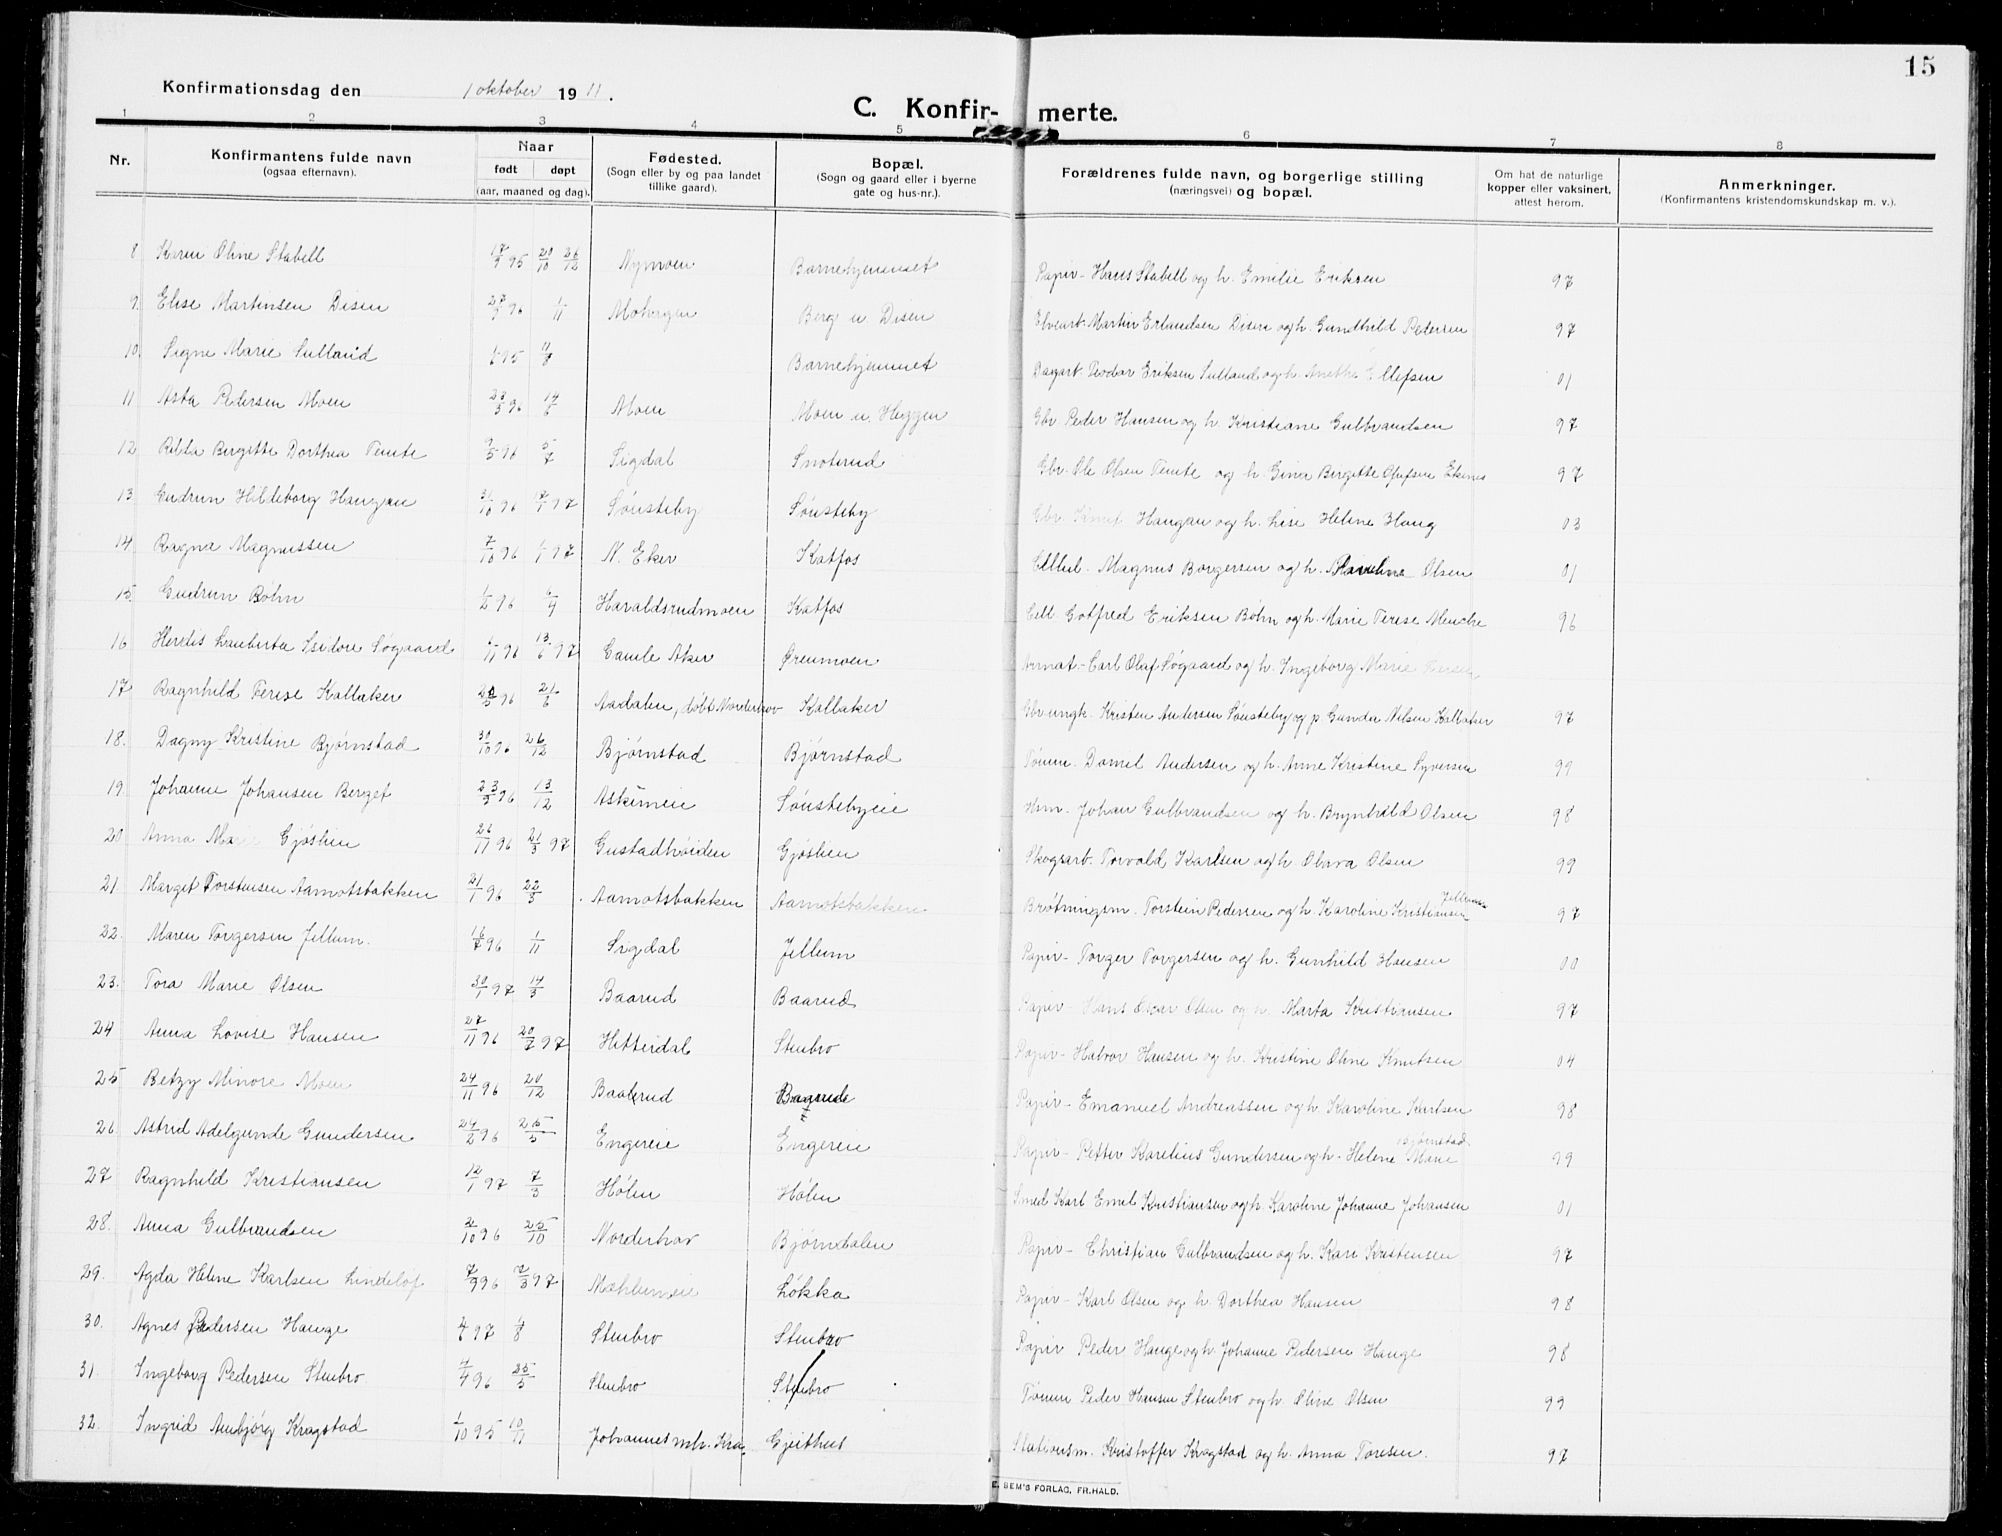 15
Konfirmationsdag den 1 oktober 1911.
C. Konfir- merte.
1 2 3 4 5 6 7 8
Nr. Konfirmantens fulde navn (ogsaa efternavn). Naar født døpt (aar, maaned og dag). Fødested. (Sogn eller by og paa landet tillike gaard). Bopæl. (Sogn og gaard eller i byerne gate og hus-nr.). Forældrenes fulde navn, og borgerlige stilling (næringsvei) og bopæl. Om hat de naturlige kopper eller vaksinert, attest herom. Anmerkninger. (Konfirmantens kristendomskundskap m. v.).
8 Karen Oline Stabell 17/9 95 20/10 26/12 Nymoen Barnehjemmet Papir- Hans Stabell og h. Emilie Eriksen 97
9. Elise Martinsen Disen 27/9 96 1/11 Berg u. Disen Martin Erlandsen Disen og h. Gundhild Pedersen 97
10. Signe Marie Sulland 95 11/8 Barnehjemmet Eriksen Sulland og h. Anethe Ellefsen 01
11 Asta Pedersen Moen 23/5 96 14/6 Moen Moen u. Heggen Gbr. Peder Hansen og h. Kristiane Gulbrandsen 97
12 Birgitte Dorthea Temte 9/5 96 5/7 Sigdal Snoterud Gbr. Ole Olsen Temte og h. Gina Birgitte Ekenes 97
13 Gudrun Hildeborg Haugan 31/10 96 17/1 97 Sønsteby Sønsteby Gbr. Knut Haugan og h. Lise Helene Haug 03
14 Ragna Magnussen 7/10 96 97 N. Eker Katfos Cellul. Magnus Borgersen og h. Olsen 01
15. Gudrun Bøhn 1/2 96 6/4 Haraldsrudmoen Katfos Cell. Gotfred Eriksen Bøhn og h. Marie Terese Menche 96
16 Herdis Lauberta Isidore Søgaard 1/11 96 13/6 97 Gamle Aker Ørenmoen Carl Olaf Søgaard og h. Ingeborg Marie
17 Ragnhild Terese Kallaker 96 21/6 Aadalen, døbt Norderhov Kallaker Gbr. ungk. Kristen Andersen Sønsteby og p. Gunda Nilsen Kallaker 97
18. Dagny Kristine Bjørnstad 30/10 96 26/12 Bjørnstad Bjørnstad Tømm. Daniel Andersen og h. Anne Kristine Syversen 99
19. Johanne Johansen Berget 23/9 96 13/12 Sønstebyeie Johan Gulbrandsen og h. Brynhild Olsen 98
20 Anna Marie Gjøslien 26/11 96 21/3 97 Gustadhøiden Gjøslien Skogsarb. Torvald Karlsen og h. Oliva Olsen 99
21. Marget Torstensen Aamotsbakken 21/1 96 22/3 Aamotsbakken Aamotsbakken Brøtningsm. Torstein Pedersen og h. Karoline Kristiansen Jellum 97
22. Maren Torgersen Jellum. 16/7 96 1/11 Sigdal Jellum Papir- Torger Torgersen og h. Gunhild Hansen 00
23. Tora Marie Olsen 30/1 97 14/3 Baarud Baarud Papir- Hans Oscar Olsen og h. Marta Kristiansen 97
24 Anna Lovise Hansen 27/11 96 20/7 97 Hitterdal Stenbro Papir- Halvor Hansen og h. Kristine Oline Knutsen 04
25 Betzy Minore Moen 24/11 96 20/12 Papir- Emanuel Andreassen og h. Karoline Karlsen 98
26. Astrid Adelgunde Gundersen 24/2 96 25/5 Engereie Engeren Papir- Petter Karelius Gundersen og h. Helene Marie Bjørnstad 99
27 Ragnhild Kristiansen 12/1 97 7/3 Hølen Hølen Smed Karl Emil Kristiansen og h. Karoline Johanne Johansen 01
28. Anna Gulbrandsen 2/10 96 25/10 Norderhov Bjørndalen Papir- Christian Gulbrandsen og h. Kari Kristensen 97
29. Agda Helene Karlsen Lindeløf 7/9 96 7/3 97 Mæhlumseie Løkka Papir- Karl Olsen og h. Dorthea Hansen 98
30. Agnes Pedersen Hauge 97 1/8 Stenbro Stenbro Papir Peder Hauge og h. Johanne Pedersen Hauge 98
31. Ingeborg Pedersen Stenbro 7/4 96 25/5 Stenbro Stenbro Tømm Peder Hansen Stenbro og h. Oline Olsen 99
32. Ingrid Ambjørg Kragstad 1/10 95 10/11 Johannes mh. Kra. Gjeithus Stationsm. Kristoffer Kragstad og h. Anna Toresen. 97
E. SEM'S FORLAG, FR.HALD.